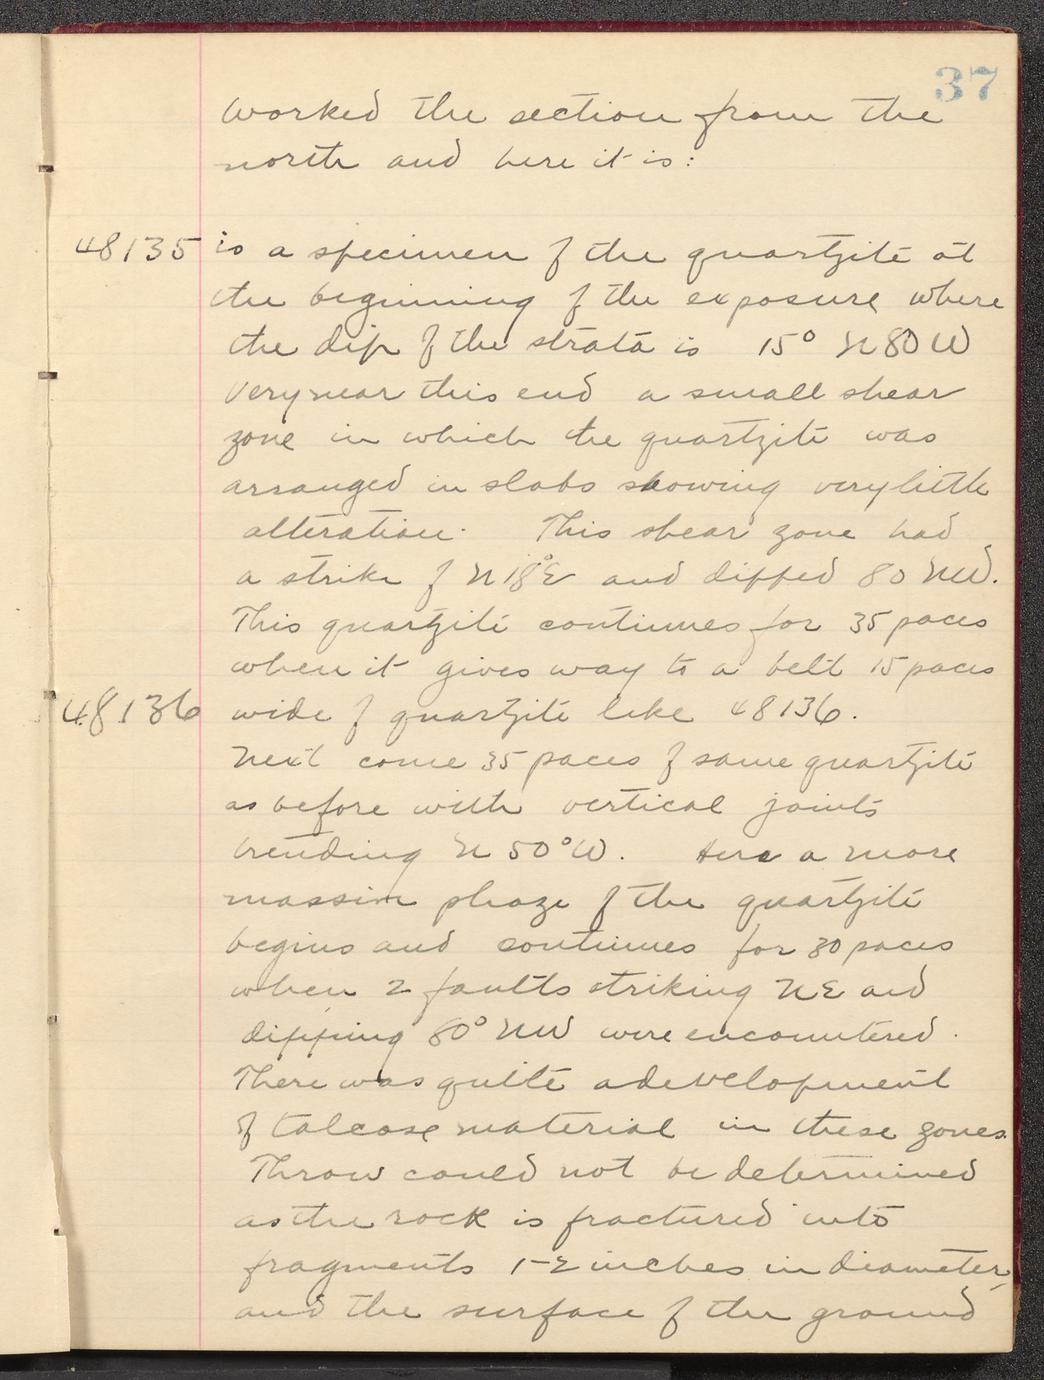 37
worked the section from the
north and here it is:
48135 is a specimen of the quartzite at
the beginning of the exposure where
the dip of the strata is 15° N80W
Very near this end a small shear
zone in which the quartzite was
arranged in slabs showing very little
alteration. This shear zone had
a strike of N18°E and dipped 80 NW.
This quartzite continues for 35 paces
when it gives way to a belt 15 paces
48136 wide of quartzite like 48136.
Next come 35 paces of same quartzite
as before with vertical joints
trending N50°W. Here a more
massive phaze of the quartzite
begins and continues for 30 paces
when 2 faults striking NE and
dipping 80° NW were encountered.
There was quite a development
of talcose material in these zones.
Throw could not be determined
as the rock is fractured into
fragments 1-2 inches in diameter,
and the surface of the ground